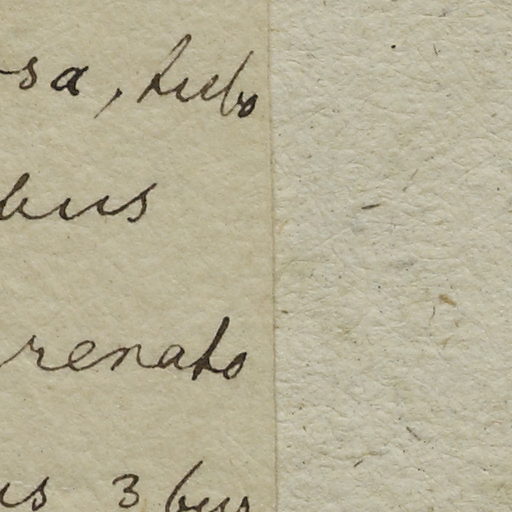 sa, tubo
bus
renato
us 3 bus